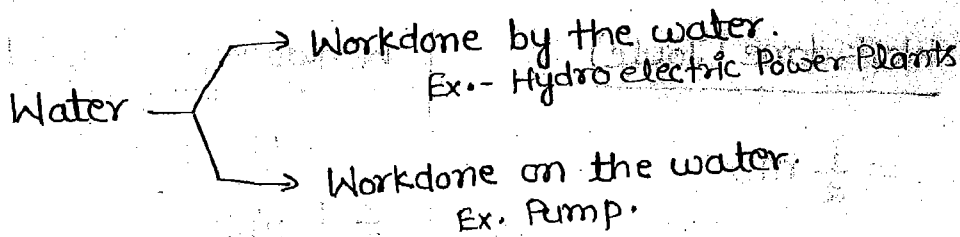 Workdone by the water.
Ex.- Hydroelectric Power Plants
Water
Workdone on the water.
Ex. Pump.